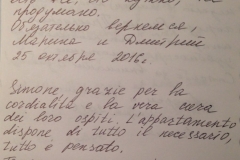 продумано.
Обязательно вернемся,
Марина и Дмитрий
25 октября 2016г.
Simone, grazie per la
cordialità e la vera cura
dei loro ospiti. L'appartamento
dispone di tutto il necessario,
tutto è pensato.